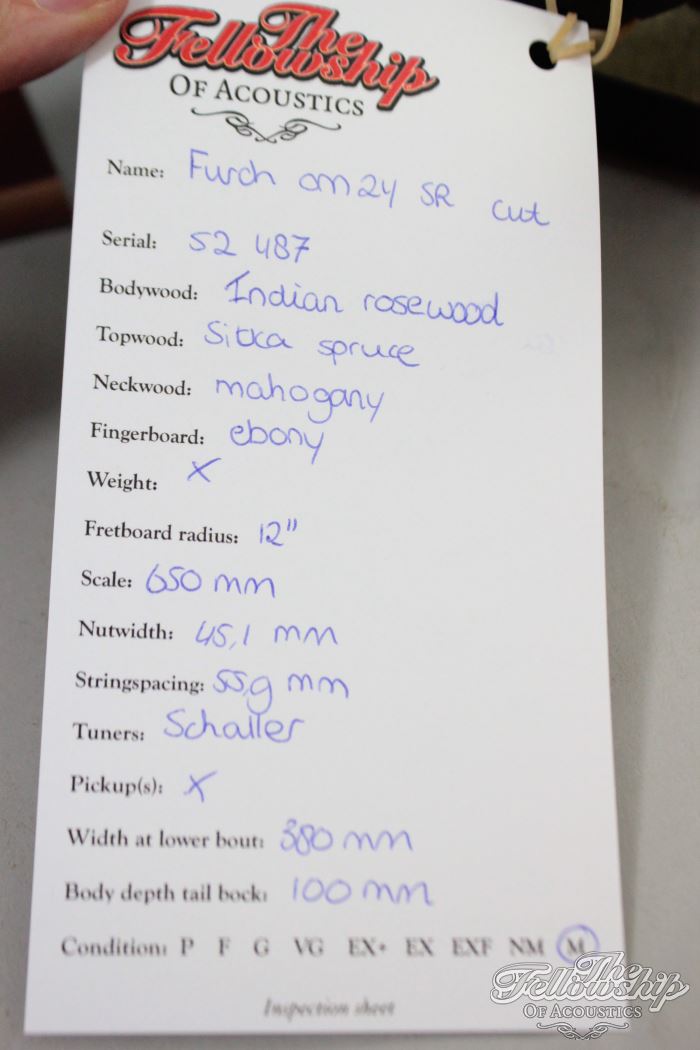 The
Fellowship
OF ACOUSTICS
Name: Furch om24 SR cut
Serial: 52 487
Bodywood: Indian rosewood
Topwood: Sitka spruce
Neckwood: mahogany
Fingerboard: ebony
Weight: X
Fretboard radius: 12"
Scale: 650 mm
Nutwidth: 45,1 mm
Stringspacing: 55,9 mm
Tuners: Schaller
Pickup(s): X
Width at lower bout: 380 mm
Body depth tail bock: 100 mm
Condition: P F G VG EX+ EX EXF NM M
Inspection sheet
The
Fellowship
OF ACOUSTICS